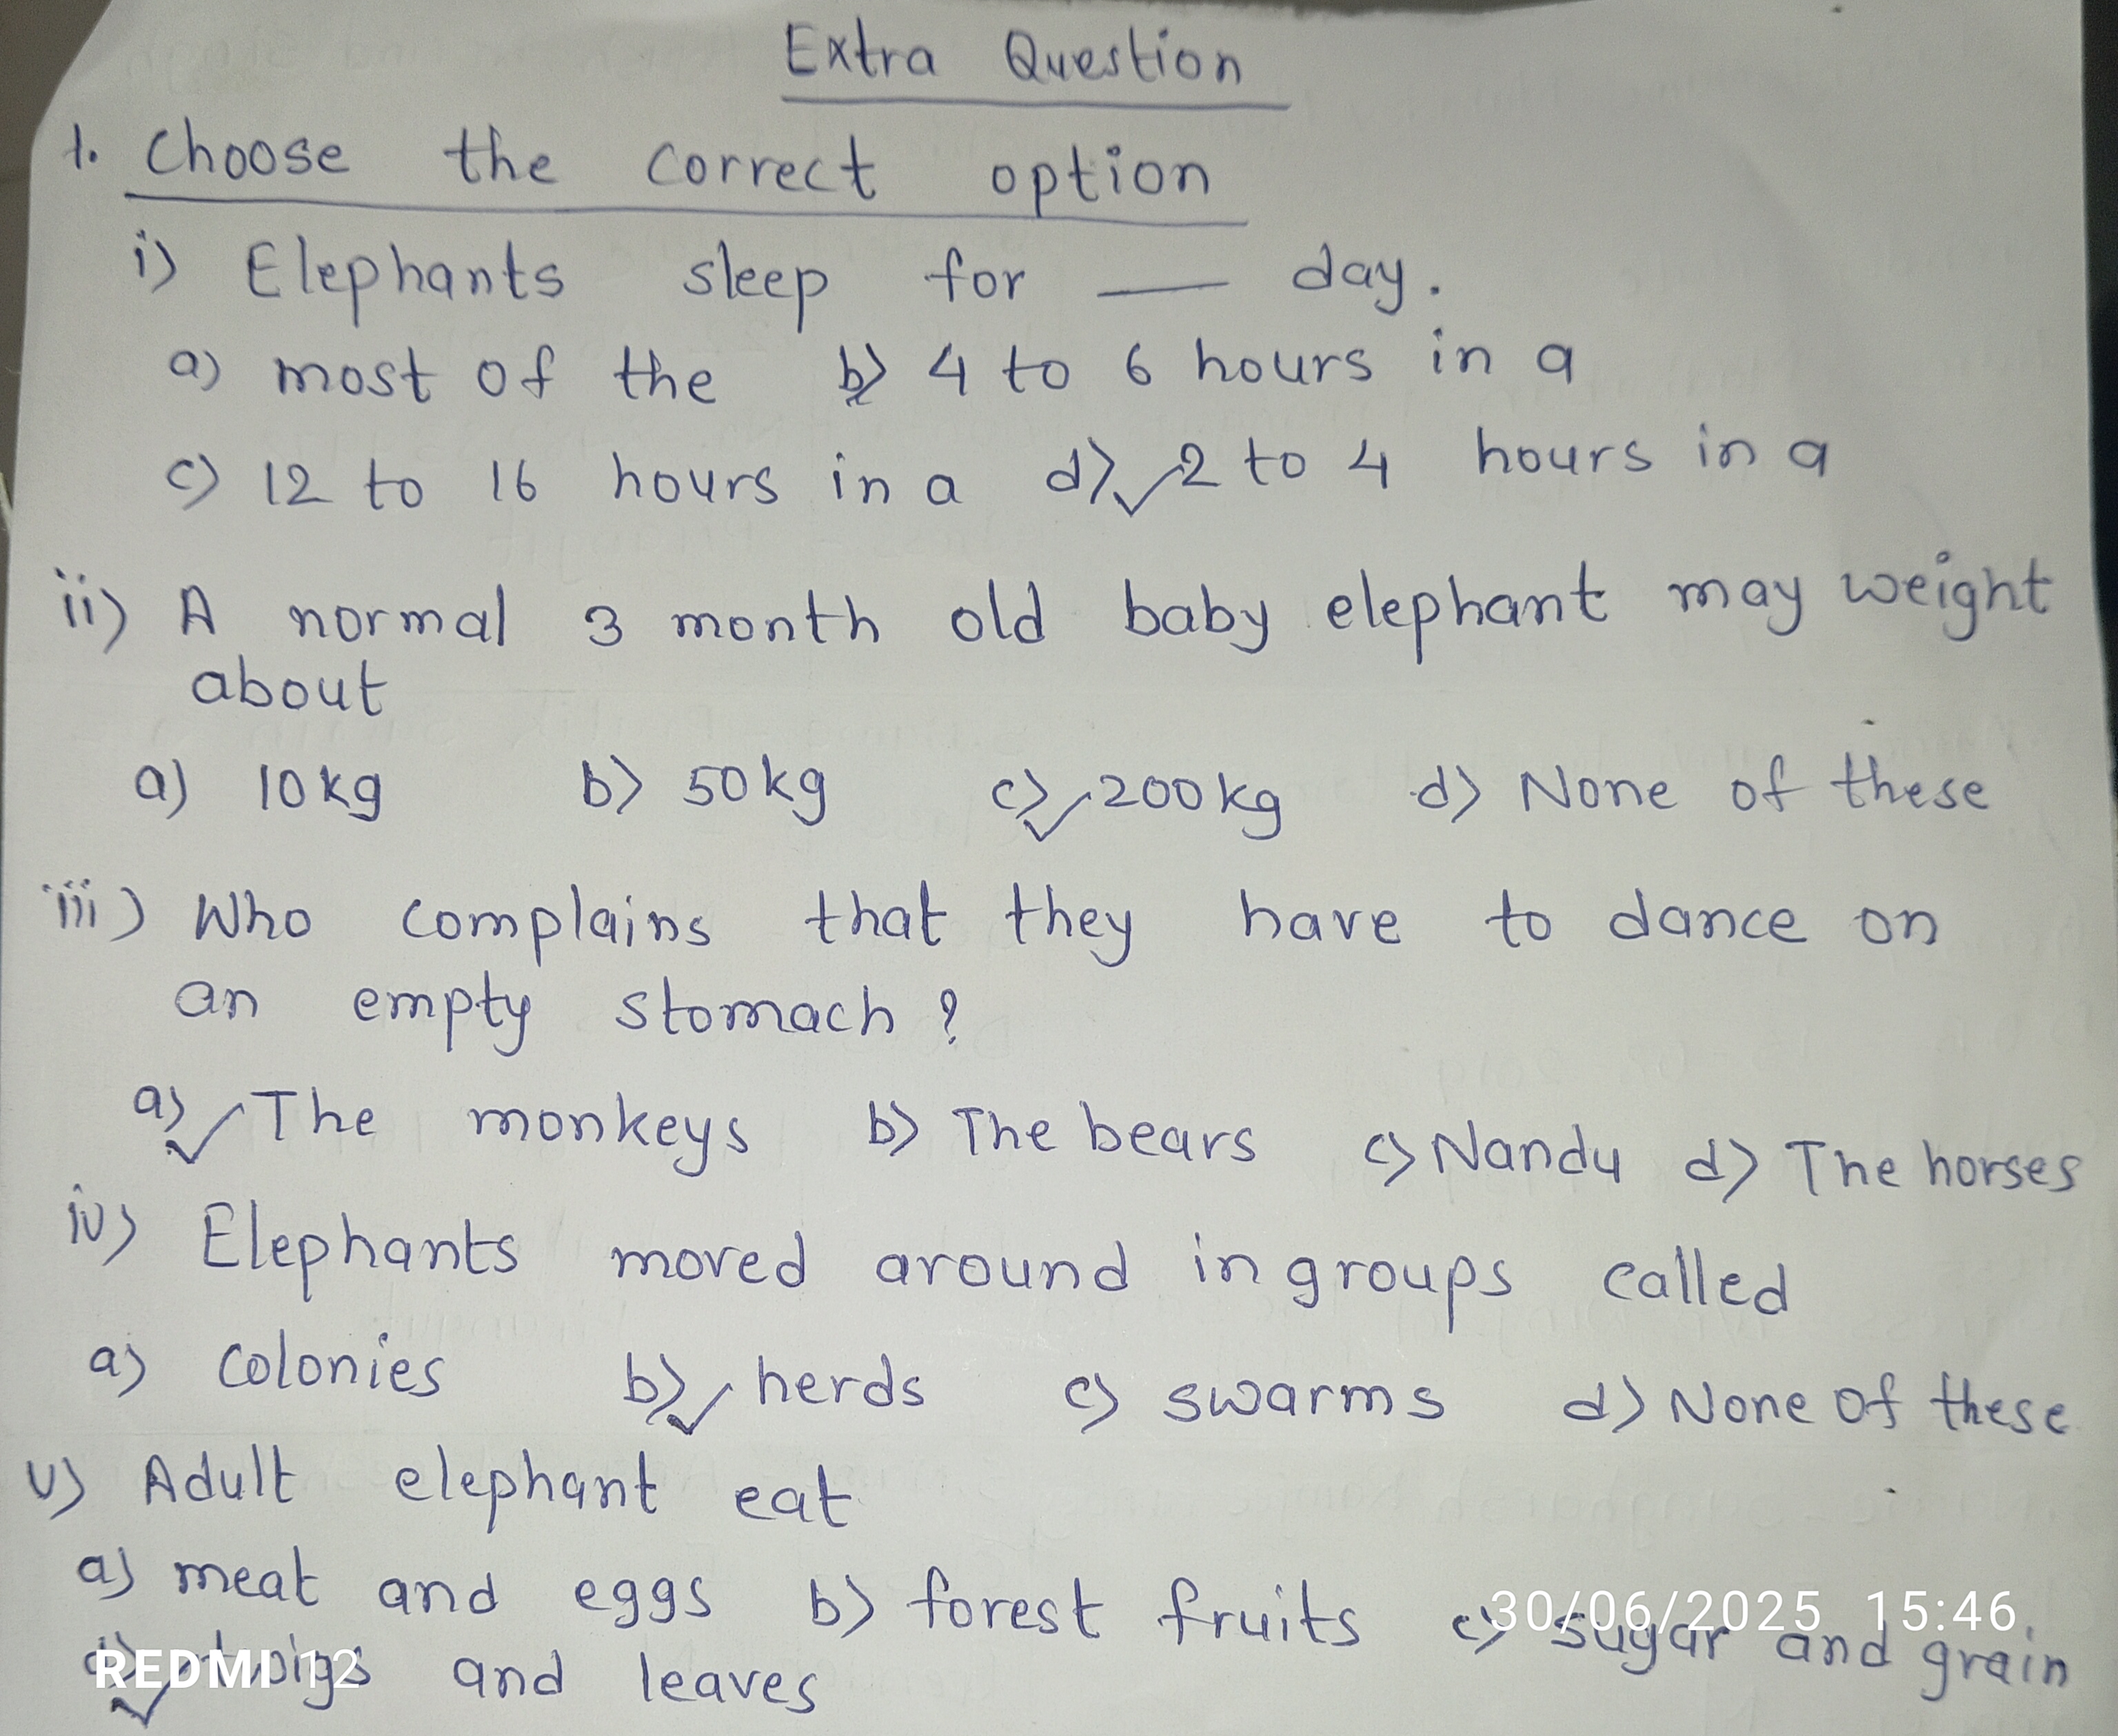 Extra Question
1. Choose the correct option
i) Elephants sleep for — day.
a) most of the b) 4 to 6 hours in a
c) 12 to 16 hours in a d) ✓ 2 to 4 hours in a
ii) A normal 3 month old baby elephant may weight
about
a) 10kg b) 50kg c) ✓ 200kg d) None of these
iii) Who complains that they have to dance on
an empty stomach?
a) ✓ The monkeys b) The bears c) Nandu d) The horses
iv) Elephants moved around in groups called
a) colonies b) ✓ herds c) swarms d) None of these
v) Adult elephant eat
a) meat and eggs b) forest fruits c) sugar and grain
d) ✓ twigs and leaves
30/06/2025 15:46
REDMI 12